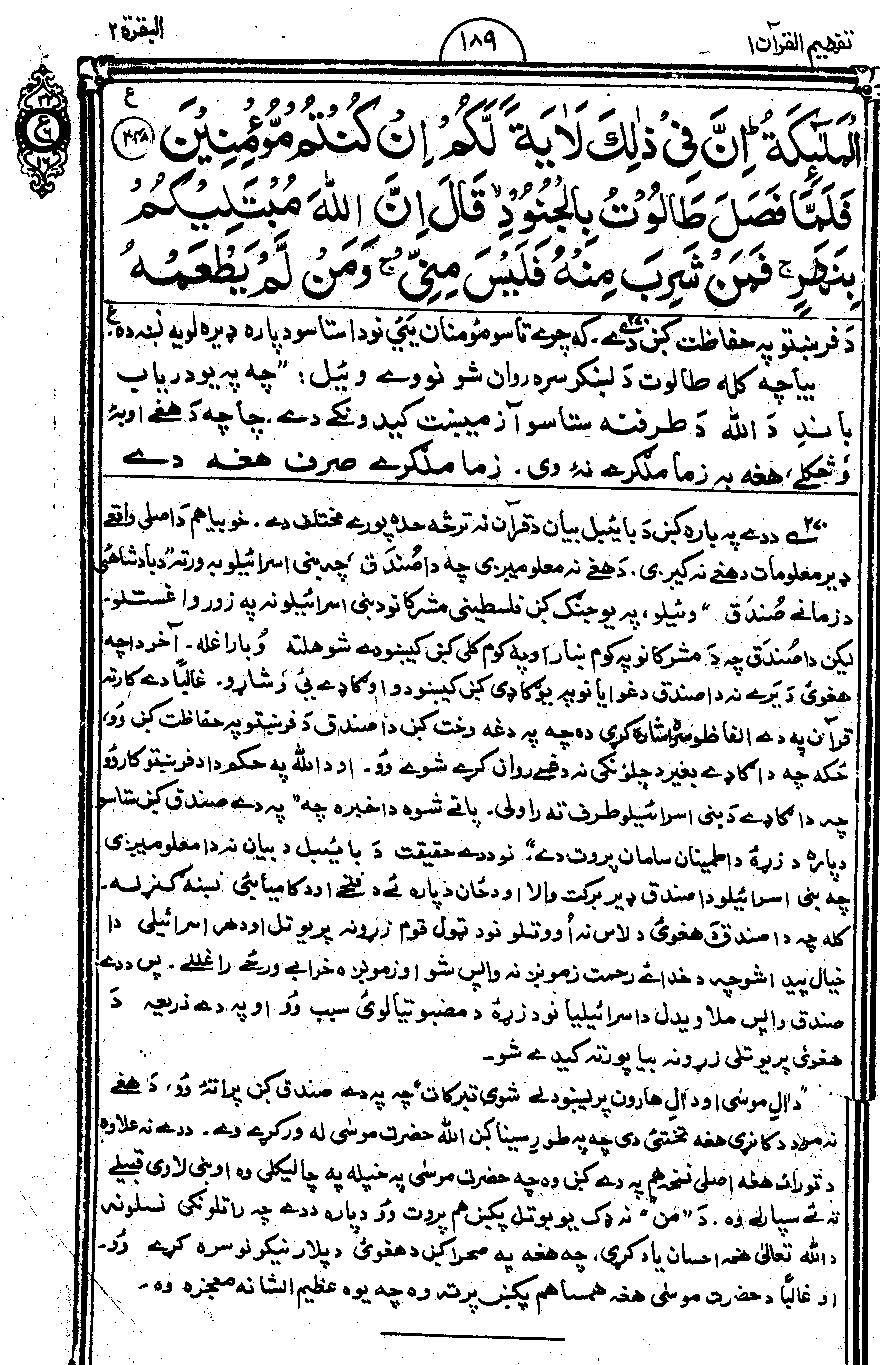 تفهيم القرآن ١
١٨٩
البقرة ٢
الْمَلٰٓئِكَةُ ؕ اِنَّ فِیْ ذٰلِكَ لَاٰیَةً لَّكُمْ اِنْ كُنْتُمْ مُّؤْمِنِیْنَ ﴿۲۴۸﴾
ع
فَلَمَّا فَصَلَ طَالُوْتُ بِالْجُنُوْدِ ۙ قَالَ اِنَّ اللّٰهَ مُبْتَلِیْكُمْ
بِنَهَرٍ ۚ فَمَنْ شَرِبَ مِنْهُ فَلَیْسَ مِنِّیْ ۚ وَمَنْ لَّمْ یَطْعَمْهُ
دَ فرښتو په حفاظت کښ دے ۲۷۰. که چرے تاسو مؤمنان یئ نو دا ستاسو دپاره ډیره لویه نښه ده.
بیا چه کله طالوت دَ لښکر سره روان شو نو وے وئیل: "چه په یو دریاب
باندِ دَ الله دَ طرفنه ستاسو آزمیښت کیدونکے دے. چا چه دَ هغے اوبۀ
وُڅکلے، هغه به زما ملګرے نۀ وی. زما ملګرے صرف هغه دے
۲۷۰ ددے په باره کښ دَ بائیبل بیان دَ قرآن نه ترڅه حده پورے مختلف دے. خو بیا هم دَ اصلی واقعے
ډیر معلومات د هغے نه کیږی. دَ هغے نه معلومیږی چه دا صُندَق، چه بنی اسرائیلو به ورته "د بادشاهئ
د زمانے صُندَق" وئیلو، په یو جنګ کښ فلسطینی مشرکانو د بنی اسرائیلو نه په زور واغستلو.
لیکن دا صُندَق چه دَ مشرکانو په کوم ښار او په کوم کلی کښ کیښودے شو هلته وُبا راغله. آخر دا چه
هغوئ دَ یَرے نه دا صندق د غوایانو په یو ګاډی کښ کیښودو او ګاډے یئ وُشاړو. غالباً دے کار ته
قرآن په دے الفاظو سره اشاره کړی ده چه په دغه وخت کښ دا صندق دَ فرښتو په حفاظت کښ وُو،
ځکه چه دا ګاډے بغیر د چلونکی نه دغسے روان کړے شوے وُو. او د الله په حکم دا د فرښتو کار وُو
چه دا ګاډے دَ بنی اسرائیلو طرف ته راولی. پاتے شوه دا خبره چه "په دے صندق کښ ستاسو
دپاره د زړۀ د اطمینان سامان پروت دے" نو ددے حقیقت دَ بائیبل د بیان نه دا معلومیږی
چه بنی اسرائیلو دا صندق ډیر برکت والا او د ځان دپاره ئے د فتحے او د کامیابئ نښه ګنړله.
کله چه دا صندق دَ هغوئ د لاس نه اُووتلو نو د ټول قوم زړونه پریوتل او د هر اسرائیلی دا
خیال پیدا شو چه د خدائے رحمت زمونږ نه واپس شو او زمونږه خرابے ورځے راغلے. پس ددے
صندق واپس ملاویدل د اسرائیلیانو د زړۀ د مضبوتیا لوئ سبب وُو او په دے ذریعه دَ
هغوئ پریوتلی زړونه بیا پورته کیدے شو.
"د اٰلِ موسٰی او د اٰلِ هارون پریښودلے شوی تبرکات" چه په دے صندق کښ پراتۀ وُو، دَ هغے
نه مراد د کانړی هغه تختئی دی چه په طورِ سینا کښ الله حضرت موسٰی له ورکړے دے. ددے نه علاوه
د تورات هغه اصلی نسخه هم په دے کښ وه چه حضرت موسٰی په خپله په چا لیکلی وه او بنی لاوی قبیلے
ته ئے سپارلے وه. دَ "من" نه ډک یو بوتل پکښ هم پروت وُو دپاره ددے چه راتلونکی نسلونه
دالله تعالیٰ هغه احسان یاد کړی، چه هغه په صحرا کښ د هغوئ د پلار نیکونو سره کړے وُو.
او غالباً د حضرت موسٰی هغه همسا هم پکښ پرته وه چه یوه عظیم الشانه معجزه وه.